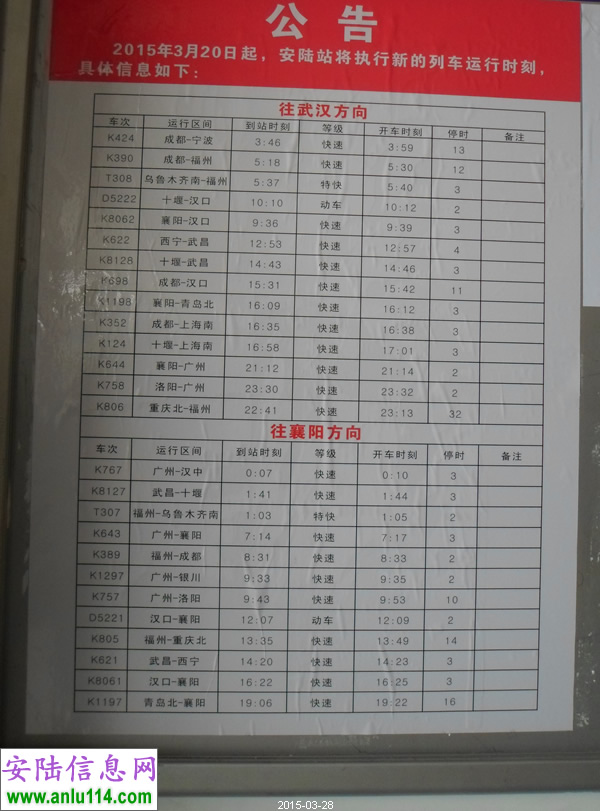 公告
2015年3月20日起，安陆站将执行新的列车运行时刻，
具体信息如下：
往武汉方向
车次 运行区间 到站时刻 等级 开车时刻 停时 备注
K424 成都-宁波 3:46 快速 3:59 13
K390 成都-福州 5:18 快速 5:30 12
T308 乌鲁木齐南-福州 5:37 特快 5:40 3
D5222 十堰-汉口 10:10 动车 10:12 2
K8062 襄阳-汉口 9:36 快速 9:39 3
K622 西宁-武昌 12:53 快速 12:57 4
K8128 十堰-武昌 14:43 快速 14:46 3
K698 成都-汉口 15:31 快速 15:42 11
K1198 襄阳-青岛北 16:09 快速 16:12 3
K352 成都-上海南 16:35 快速 16:38 3
K124 十堰-上海南 16:58 快速 17:01 3
K644 襄阳-广州 21:12 快速 21:14 2
K758 洛阳-广州 23:30 快速 23:32 2
K806 重庆北-福州 22:41 快速 23:13 32
往襄阳方向
车次 运行区间 到站时刻 等级 开车时刻 停时 备注
K767 广州-汉中 0:07 快速 0:10 3
K8127 武昌-十堰 1:41 快速 1:44 3
T307 福州-乌鲁木齐南 1:03 特快 1:05 2
K643 广州-襄阳 7:14 快速 7:17 3
K389 福州-成都 8:31 快速 8:33 2
K1297 广州-银川 9:33 快速 9:35 2
K757 广州-洛阳 9:43 快速 9:53 10
D5221 汉口-襄阳 12:07 动车 12:09 2
K805 福州-重庆北 13:35 快速 13:49 14
K621 武昌-西宁 14:20 快速 14:23 3
K8061 汉口-襄阳 16:22 快速 16:25 3
K1197 青岛北-襄阳 19:06 快速 19:22 16
安陆信息网
www.anlu114.com
2015-03-28